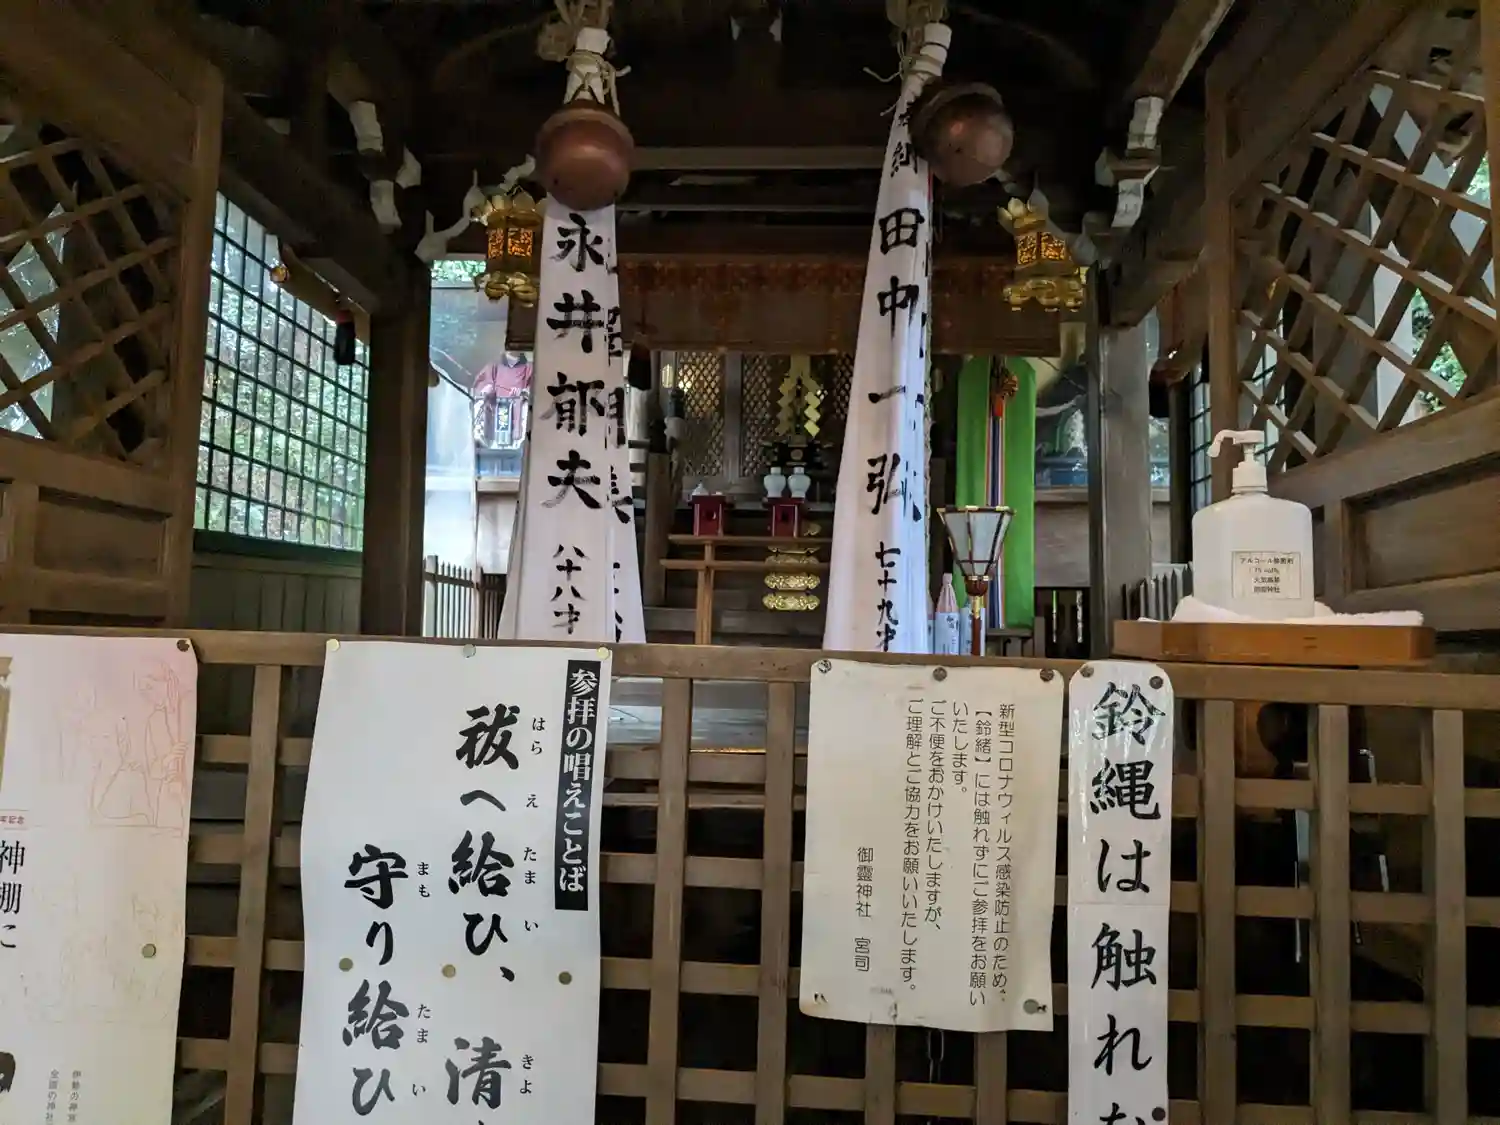 永井郁夫
八十八才
納
田中一弘
七十九才
アルコール除菌剤
御靈神社
参拝の唱えことば
祓へ給ひ、清
はら え たま い きよ
守り給ひ
まも たま い
新型コロナウィルス感染防止のため、
【鈴緒】には触れずにご参拝をお願い
いたします。
ご不便をおかけいたしますが、
ご理解とご協力をお願いいたします。
御靈神社 宮司
鈴縄は触れな
神棚に
伊勢の神宮
全国の神社